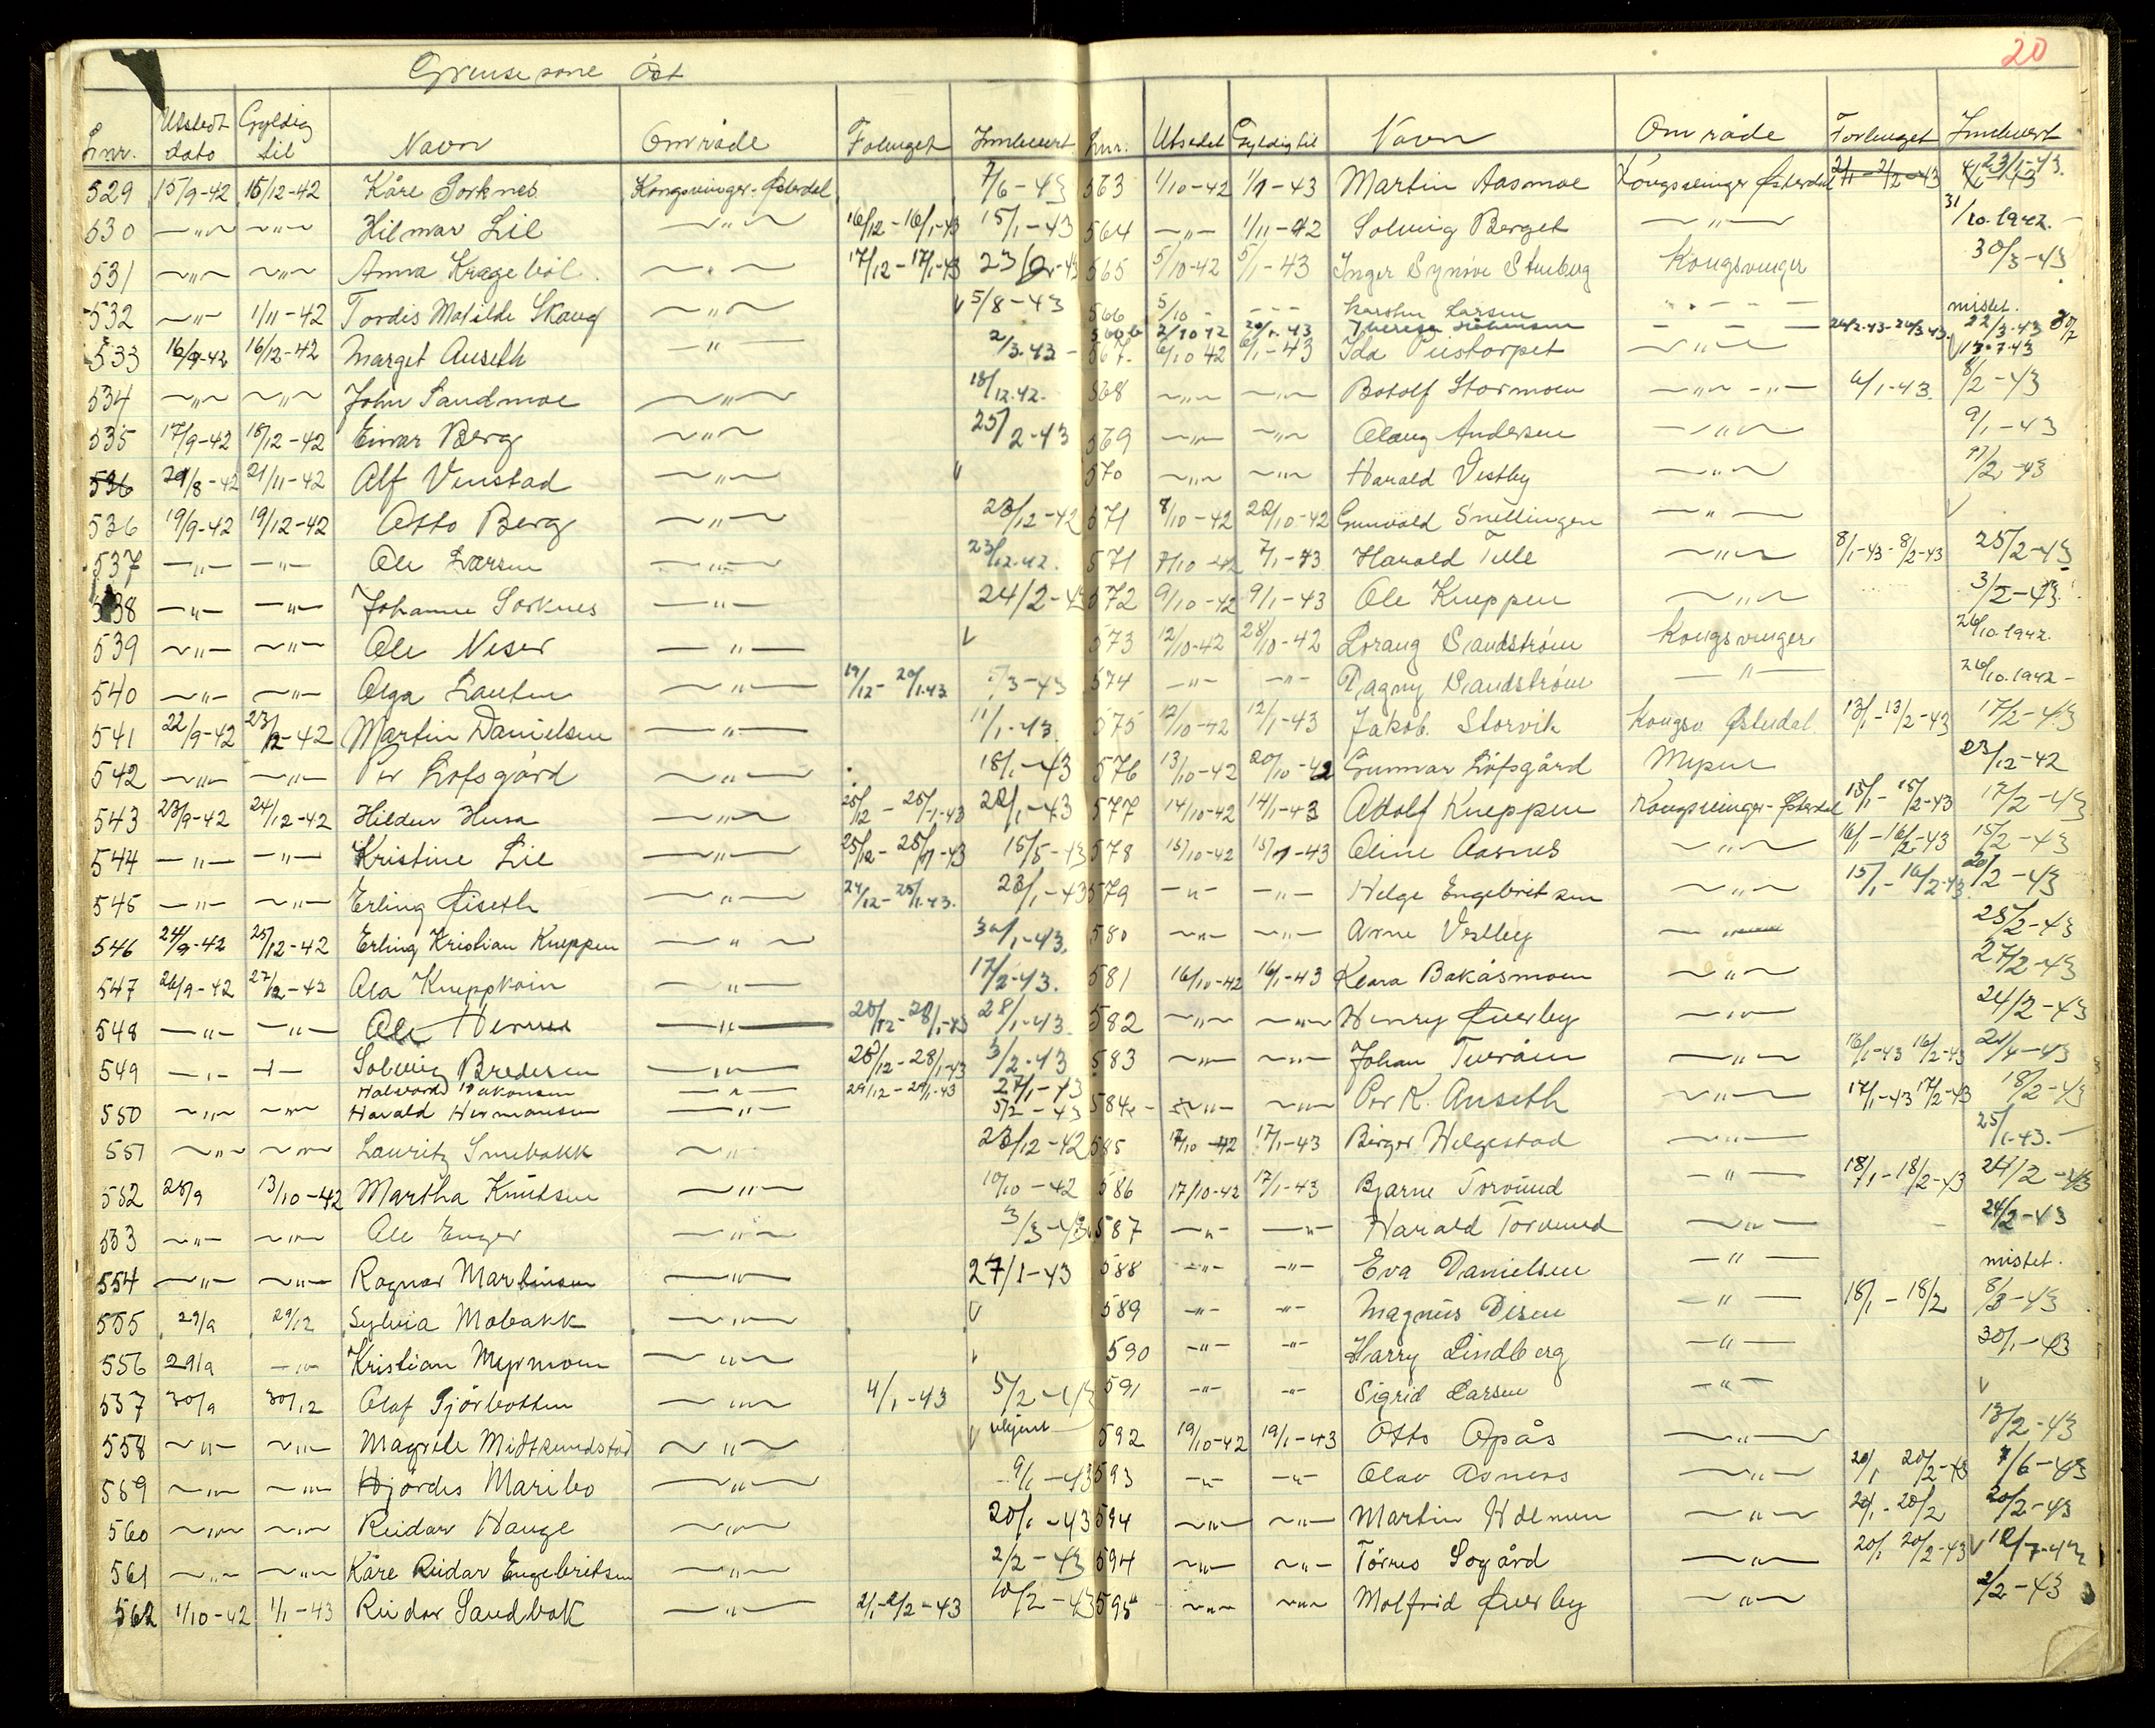 20
Grense sone Øst
Lnr. Utstedt dato Gyldig til Navn Område Forlenget Innlevert
529 15/9-42 15/12-42 Kåre Sorknes Kongsvinger-Østerdal 7/6-43
530 —"— —"— Hilmar Lie —"— 16/12-16/1-43 15/1-43
531 —"— —"— Anna Kragebøl —"— 17/12-17/1-43
532 —"— 1/11-42 Tordis Matilde Skaug —"— V 5/8-43
533 16/9-42 16/12-42 Marget Auseth —"— 2/3.43-
534 —"— —"— John Sandmoe —"— 18/12.42.
535 17/9-42 18/12-42 Einar Berg —"— 25/2-43
536 21/8-42 21/11-42 Alf Vinstad —"— V
536 19/9-42 19/12-42 Otto Berg —"— 23/12-42
537 —"— —"— Ole Larsen —"— 23/12.42.
538 —"— —"— Johanne Sorknes —"— 24/2-43
539 —"— —"— Ole Neser —"— V
540 —"— —"— Olga Lauten —"— 19/12-20/1.43 /3-43
541 22/9-42 23/12-42 Martin Danielsen —"— 11/1-43.
542 —"— —"— Per Lofsgård —"— 18/1-43
543 23/9-42 24/12-42 Hildur Husa —"— 25/12-25/1-43 28/1-43
544 —"— —"— Kristine Lie —"— 25/12-25/1-43 15/5-43
545 —"— —"— Erling Øiseth —"— 24/12-25/1.43. 23/1-43
546 24/9-42 25/12-42 Erling Kristian Kneppen —"— 30/1-43.
547 26/9-42 27/12-42 Ola Kneppkoin —"— 17/2-43.
548 —"— —"— Ole —"— 28/12-28/1-43 28/1-43.
549 —"— —"— Solveig Bredesen —"— 28/12-28/1-43 3/2-43
Halvard Håkonsen —"— 29/12-29/1-43 27/1-43
550 —"— —"— Harald Hermansen —"— 5/2-43
551 —"— —"— Lauritz Smebakk —"— 23/12-42
552 28/9 13/10-42 Martha Knutsen —"— 10/10-42
553 —"— —"— Ole Enger —"— 3/3-43
554 —"— —"— Ragnar Martinsen —"— 27/1-43
555 29/9 29/12 Sylvia Mobakk —"— V
556 29/9 —"— Kristian Myrmoen —"— V
557 30/9 30/12 Olaf Gjörbotten —"— 4/1-43 5/2-43
558 —"— —"— Magnile Midtskundstad —"— V
559 —"— —"— Hjördis Maribo —"— 9/1-43
560 —"— —"— Reidar Hauge —"— 20/1-43
561 —"— —"— Kåre Reidar Engebretsen —"— 2/2-43
562 1/10-42 1/1-43 Reidar Sandbak —"— 2/1-2/2-43 10/2-43
Lnr. Utstedt Gyldig til Navn Område Forlenget Innlevert
563 1/10-42 1/1-43 Martin Aasmoe Kongsvinger Østerdal 2/1-2/2-43 23/1-43.
564 —"— 1/11-42 Solveig Berget —"— 31/10.1942.
565 5/10-42 5/1-43 Inger Synøve Stenberg Kongsvinger 30/3-43
566 5/10 - - - - Karsten Larsen - - - mistet.
566b 2/10 42 43 Therese Johansen - - - 26/2-43-26/3-43. 22/3-43
567. 6/10 42 6/1-43 Ida Pistorpet —"— V 13.7.43
568 —"— —"— Botolf Stormoen —"— —"— 6/1-43. 8/2-43
569 —"— —"— Olaug Andersen —"— 9/1-43
570 —"— —"— Harald Vestby —"— 11/2-43
571 8/10-42 28/10-42 Gunvald Snellingen —"— V
571 7/10-42 7/1-43 Harald Telle —"— 8/1-43-8/2-43 25/2-43
572 9/10-42 9/1-43 Ole Kneppen —"— 3/2-43.
573 12/10-42 28/10-42 Lorang Sandstrøm Kongsvinger 26/10.1942.
574 —"— —"— Dagny Sandstrøm —"— 26/10.1942-
575 12/10-42 12/1-43 Jakob. Storvik Kongsv Østerdal. 13/1-13/2-43 17/2-43
576 13/10-42 20/10-42 Gunnar Löfsgård Mysen 23/12-42
577 14/10-42 14/1-43 Adolf Kneppen Kongsvinger-Østerdal 15/1-15/2-43 17/2-43
578 15/10-42 15/1-43 Oline Aasnes —"— 16/1-16/2-43 15/2-43
579 —"— —"— Helge Engebretsen —"— 15/1-16/2-43 20/2-43
580 —"— —"— Arne Vestby —"— 25/2-43
581 16/10-42 16/1-43 Klara Bakåsmoen —"— 27/2-43
582 —"— —"— Henry Øverby —"— 24/2-43
583 —"— —"— Johan Tveråen —"— 16/1-43 16/2-43 21/4-43
584 - —"— —"— Per K. Auseth —"— 17/1-43 17/2-43 18/2-43
585 17/10-42 17/1-43 Birger Helgestad —"— 25/1-43.-
586 17/10-42 17/1-43 Bjarne Torvund —"— 18/1-18/2-43 24/2-43
587 —"— —"— Harald Torvund —"— 24/2-43
588 —"— —"— Eva Danielsen —"— mistet.
589 —"— —"— Magnus Disen —"— 18/1-18/2 8/3-43
590 —"— —"— Harry Lindberg —"— 30/1-43
591 —"— —"— Sigrid Larsen —"— V
592 19/10-42 19/1-43 Otto Opås —"— 13/2-43
593 —"— —"— Olav Asness —"— 20/1 20/2-43 7/6-43
594 —"— —"— Martin Holmen —"— 20/1-20/2 20/2-43
594 —"— —"— Törres Sogård —"— 20/1 20/2-43 V 12/7-43
595 —"— —"— Molfrid Øverby —"— 2/2-43